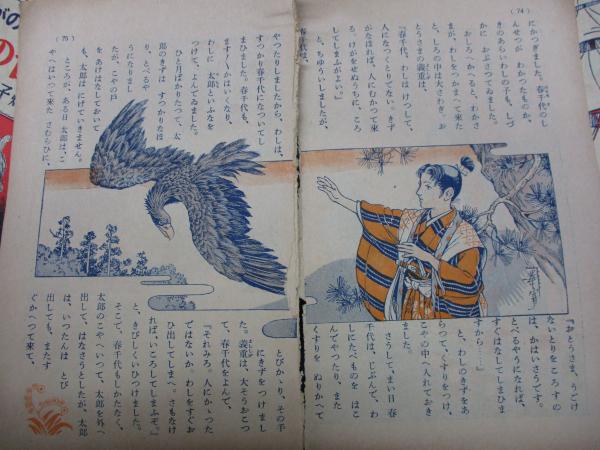 (74)
にかつぎました。春千代のし
んせつが わかつたものか、
きのあらいわしの子も、しづ
かに おぶさつてゐました。
おしろへかへると、わかさ
まが、わしをつかまへて来た
と、しろの中は大さわぎ。お
とうさまの義重は、
『春千代、わしはけつして、
人になつくとりでない。きず
がなほれば、人にむかつて来
る。けがをせぬうちに、ころ
してしまふがよい。』
と、ちゆういしましたが、
春千代は、
『おとうさま、うごけ
ないとりをころすの
は、かはいさうです。
とべるやうになれば、
すぐはなしてしまひま
すから……』
と、わしのきずをあ
らつて、くすりをつけ、
こやの中へ入れておき
ました。
さうして、まい日 春
千代は、じぶんで、わ
しにたべものを はこ
んでやつたり、また
くすりを ぬりかへて
(75)
やつたりしましたから、わしは、
すつかり春千代になついてし
まひました。春千代も、
ますますかはいくなり、
わしに 太郎といふなを
つけて、よんでゐました。
ひと月ばかりたつて、太
郎のきずは すつかりなほ
り、とべるや
うになりまし
たが、こやの戸
をあけはなしておいて
も、太郎はにげていきません。
ところが、ある日 太郎は、こ
やへはいつて来た さむらひに、
とびかゝり、その手
にきずを つけまし
た。義重は、大そうおこつ
て、春千代をよんで、
『それみろ、人にかゝつた
ではないか。わしをすぐお
ひ出してしまへ。さもなけ
れば、いころしてしまふぞ。』
と、きびしくいひつけました。
そこで、春千代もしかたなく、
太郎のこやへいつて、太郎を外へ
出して、はなさうとしたが、太郎
は、いつたんは とび
出しても、またす
ぐかへつて来て、